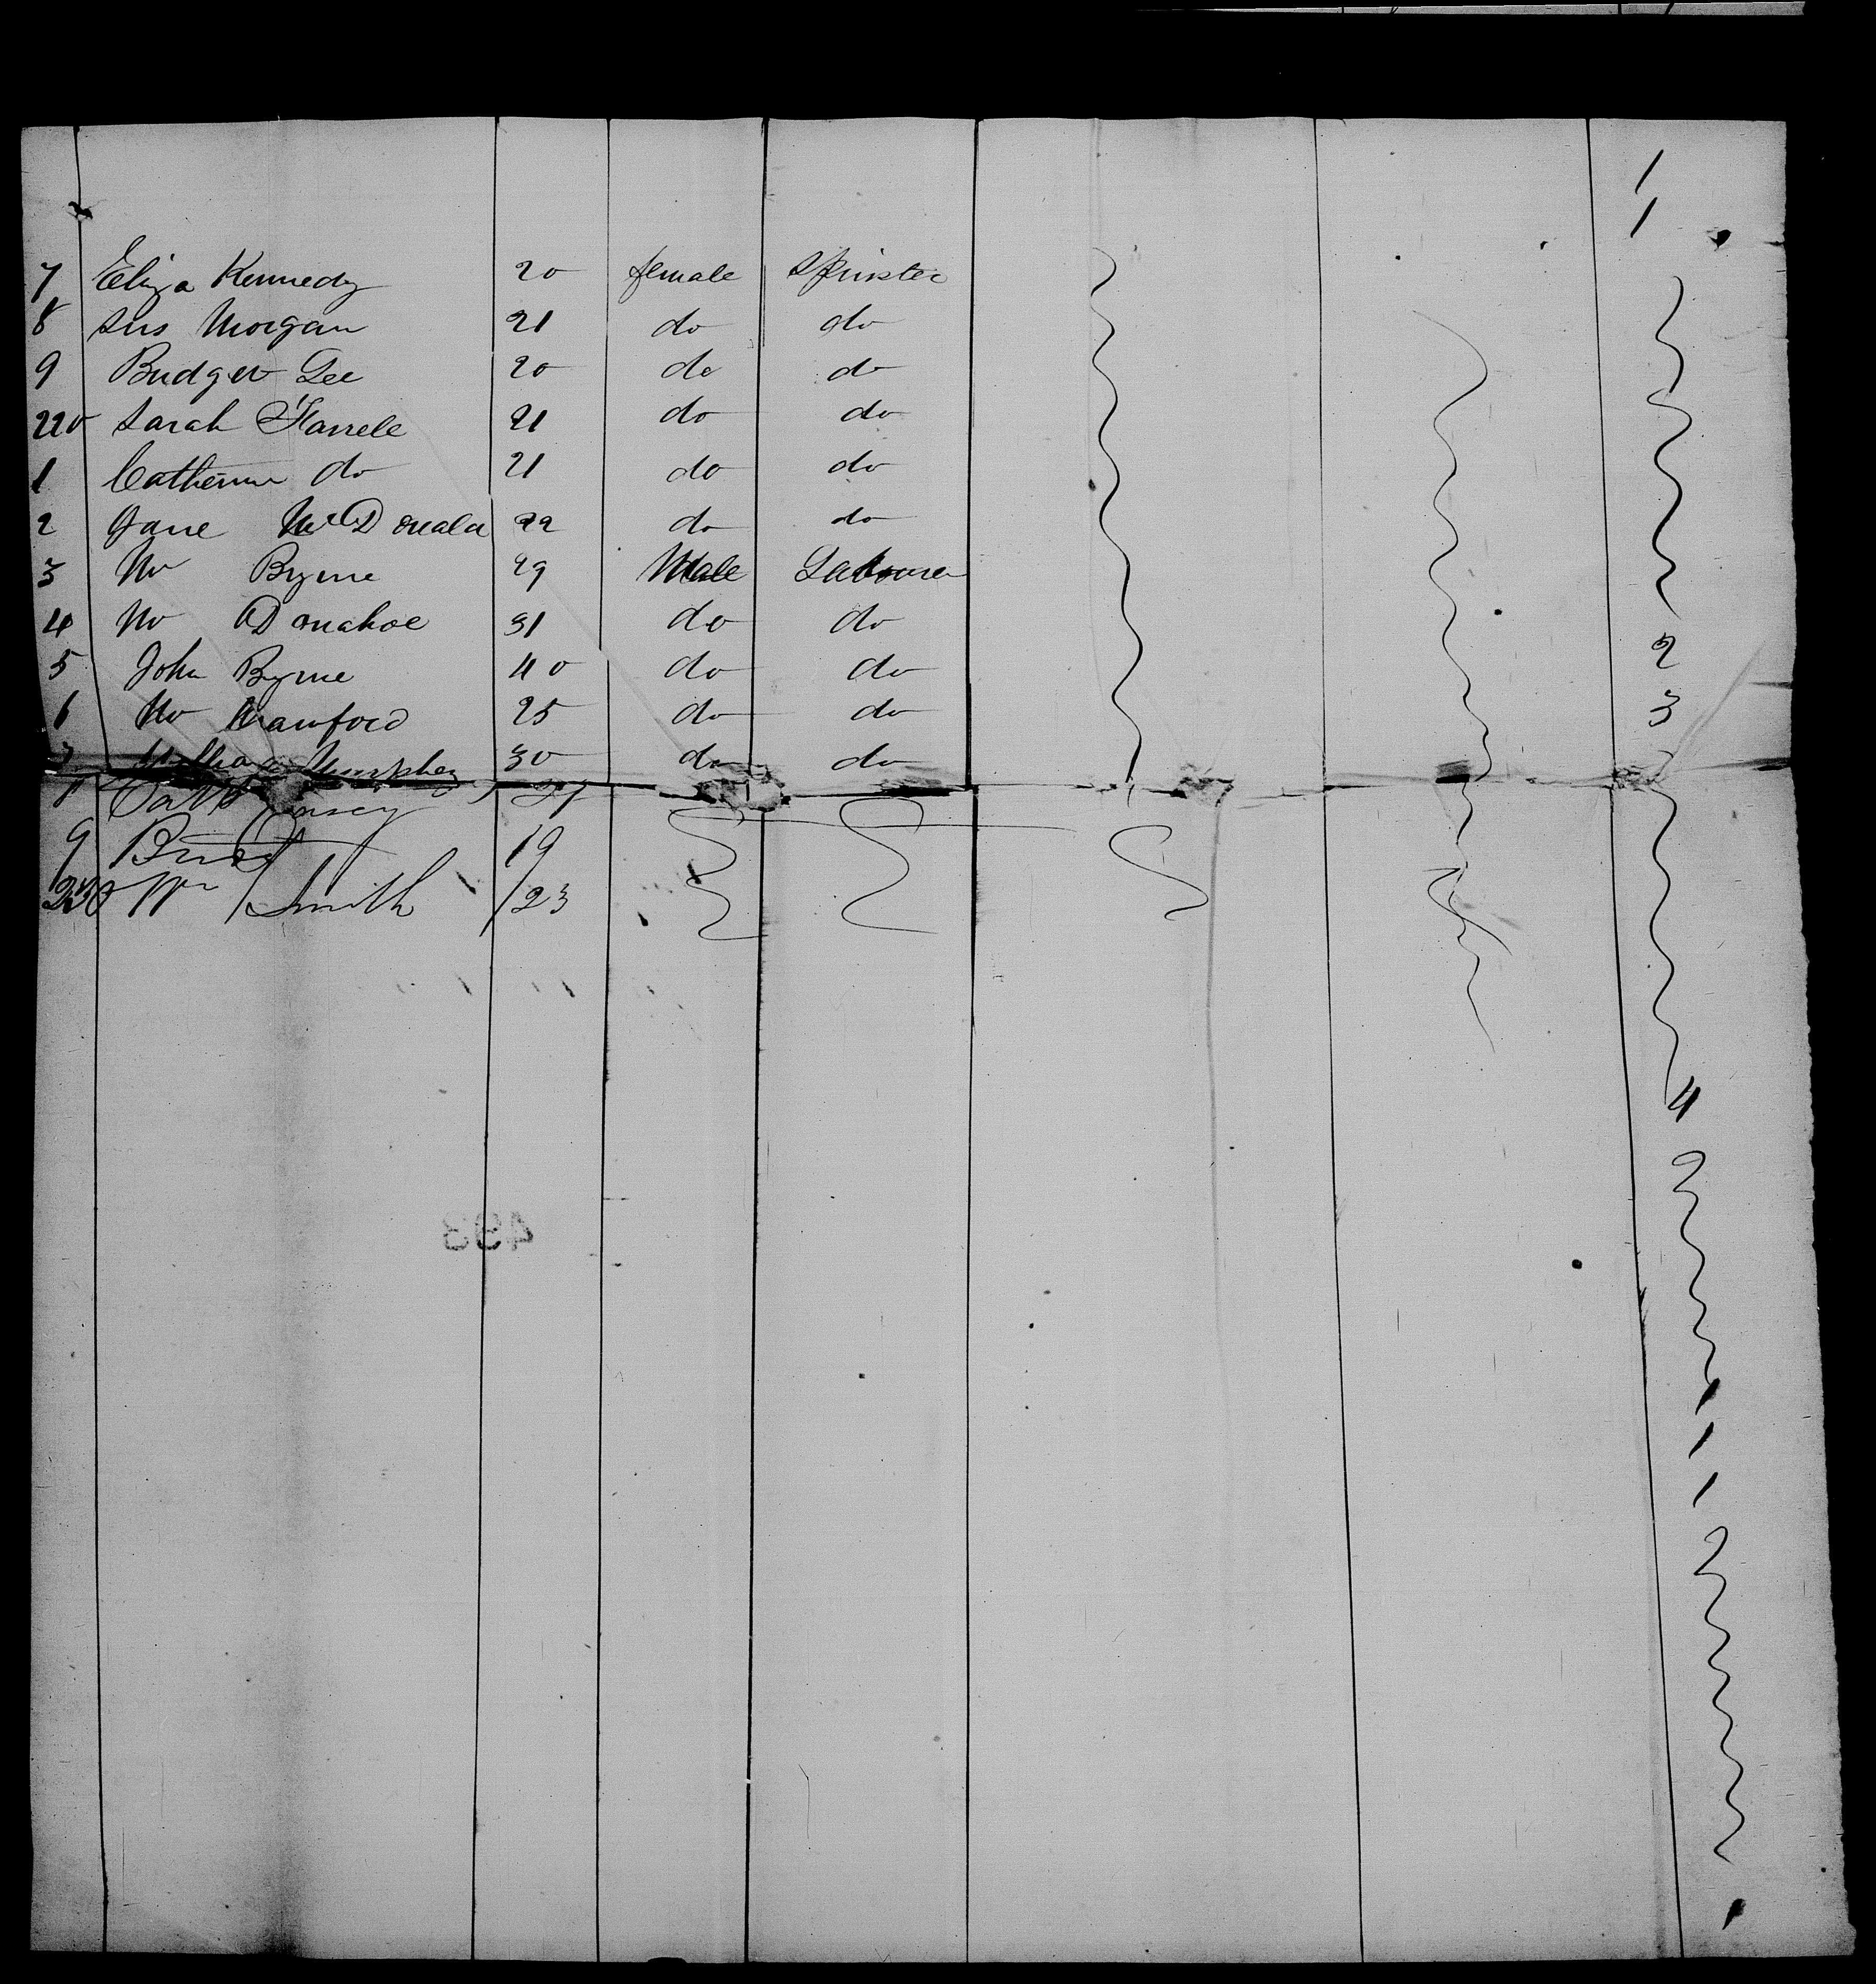 1
1
7 Eliza Kennedy 20 female Spinster
8 Sus Morgan 21 do do
9 Bridget Lee 20 do do
220 Sarah Farrele 21 do do
1 Catherine do 21 do do
2 Jane McDonald 22 do do
3 Wm Byrne 29 Male Labourer
4 Wm Donahoe 31 do do 2
5 John Byrne 40 do do
6 Wm Crawford 25 do do 3
7 Murphey 30 do do
8 Patk 27
9 19
230 Wm Smith 23
4
493
1
1
1
1